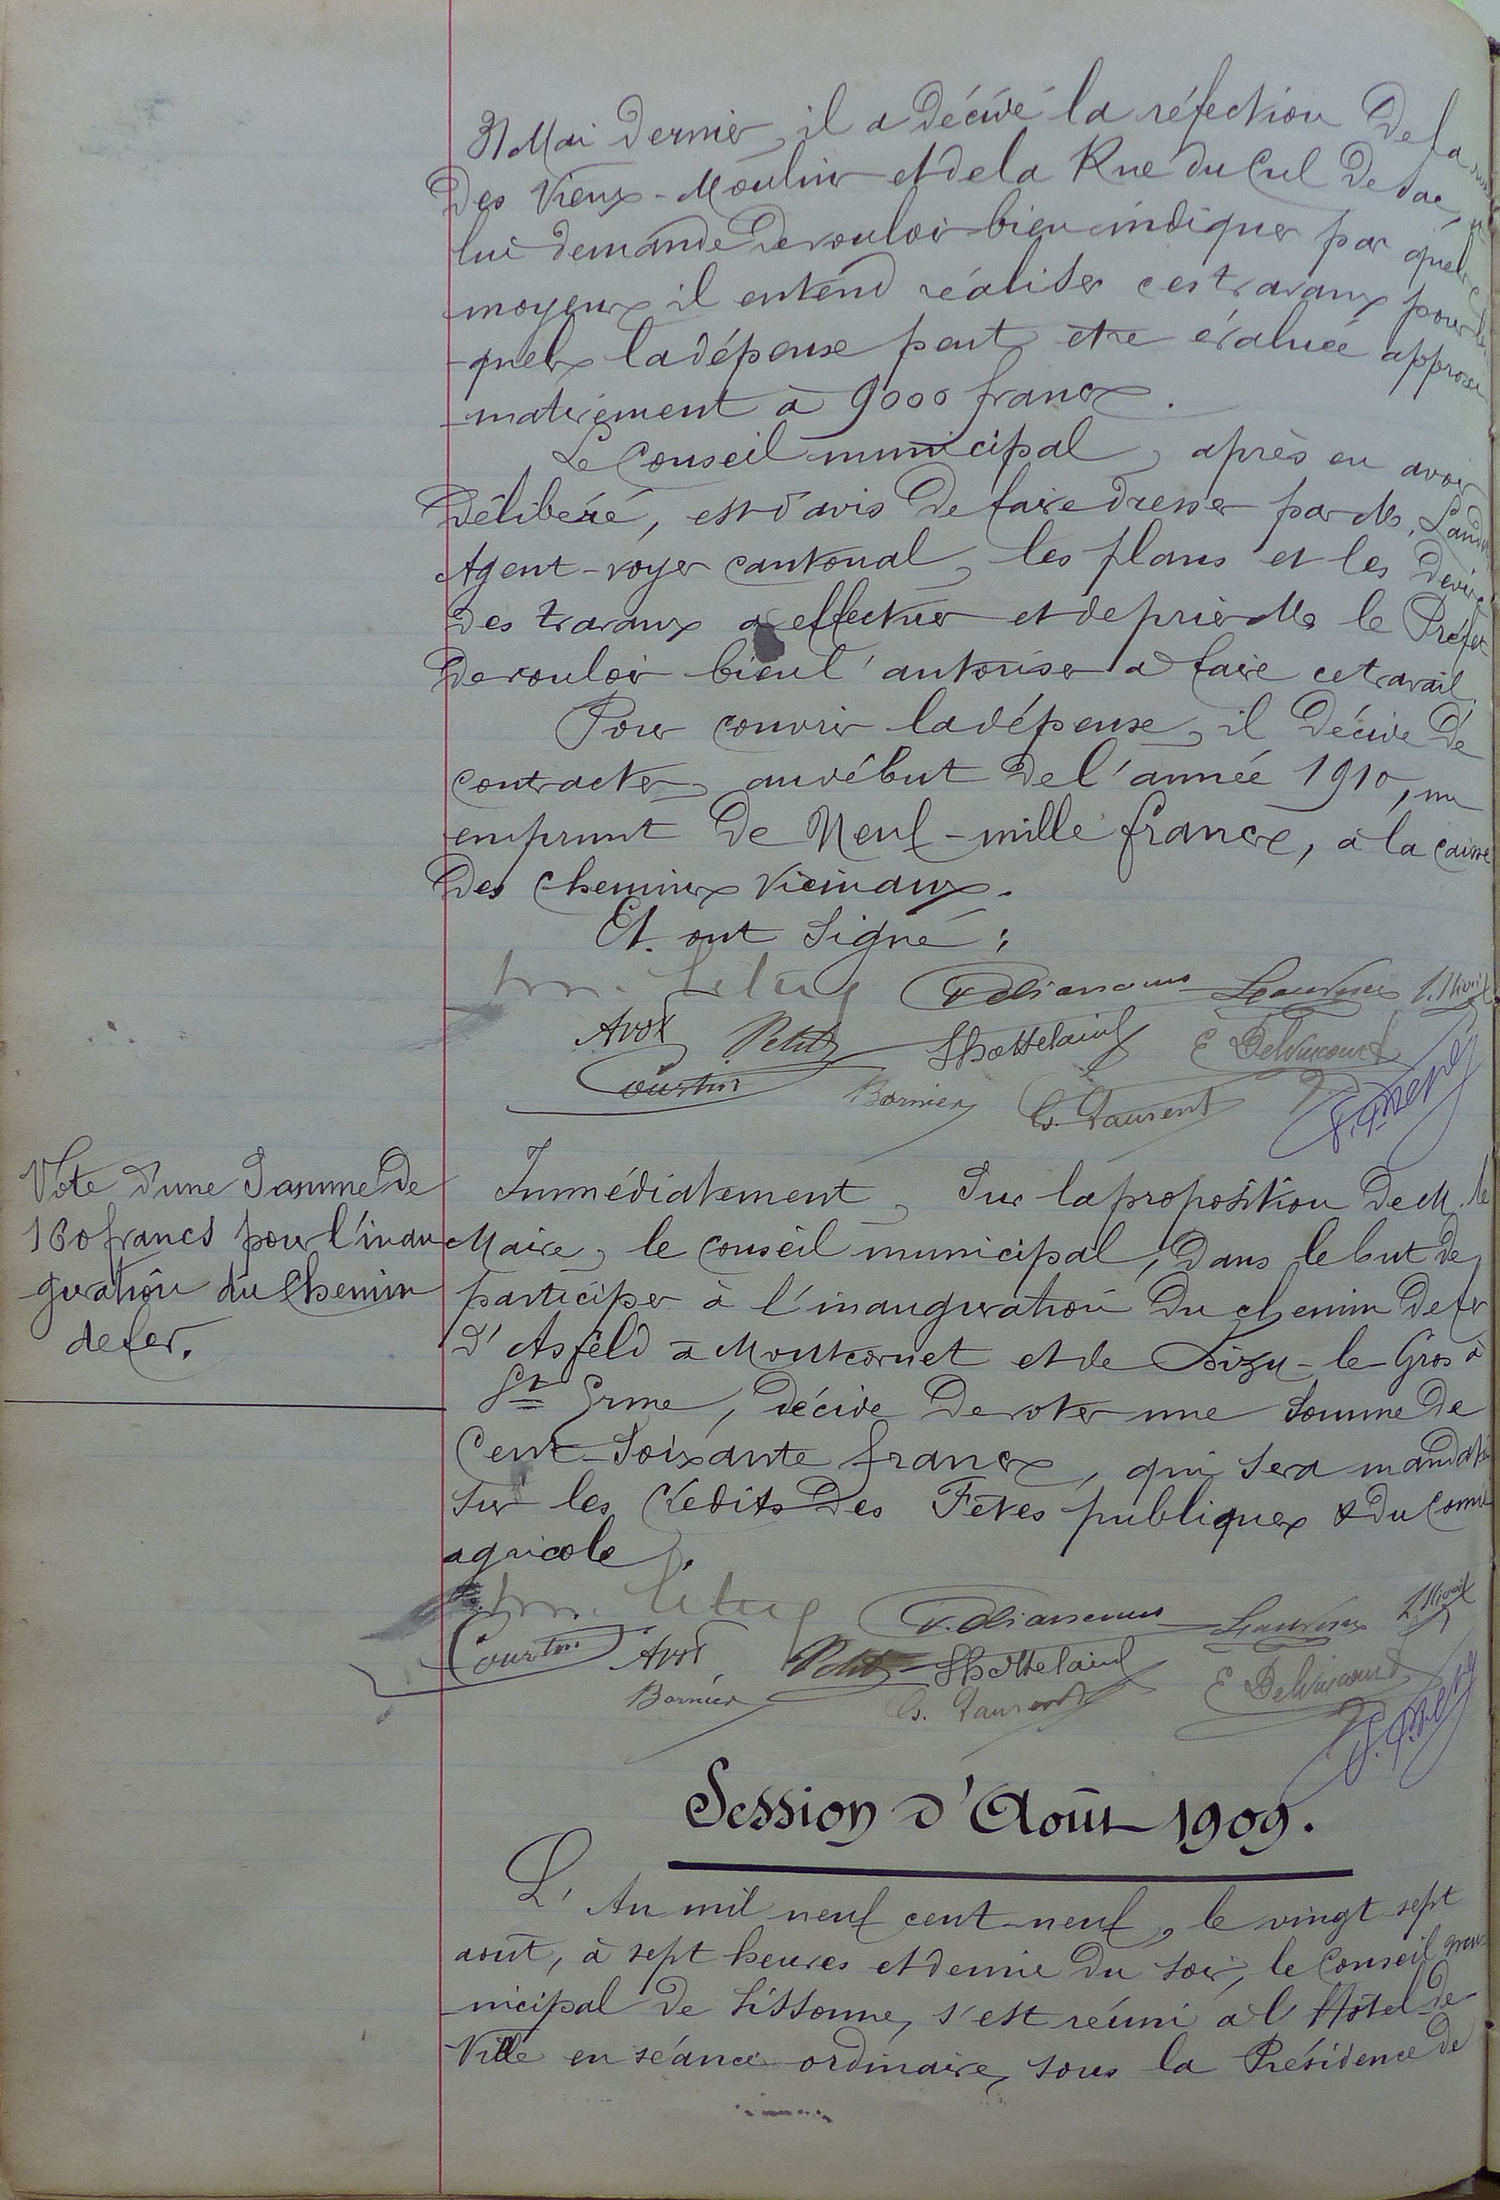 31 Mai dernier, il a décidé la réfection de la rue
des Vieux-Moulins et de la Rue du Cul de Sac,
lui demande de vouloir bien indiquer par quels
moyens il entend réaliser ces travaux pour les
quels la dépense peut être évaluée approxi
mativement à 9000 francs.
Le Conseil municipal, après en avoir
délibéré, est d'avis de faire dresser par M.
Agent-voyer cantonal, les plans et les devis
des travaux à effectuer et de prier M. le Préfet
de vouloir bien l'autoriser à faire ce travail.
Pour couvrir la dépense, il décide de
contracter, au début de l'année 1910, un
emprunt de Neuf-mille francs, à la caisse
des chemins vicinaux.
Et ont signé :
Avot Petit E Delvincourt
Courtin Bornier G. Laurent
Vote d'une Somme de
160 francs pour l'inau
guration du Chemin
de fer.
Immédiatement, Sur la proposition de M. le
Maire, le conseil municipal, dans le but de
participer à l'inauguration du chemin de fer
d'Asfeld à Montcornet et de Dizy-le-Gros à
St Erme, décide de voter une Somme de
Cent-Soixante francs, qui sera mandatée
sur les crédits des Fêtes publiques & du Comice
agricole.
Courtin Avot Petit
Bornier G. Laurent E Delvincourt
Session d'Août 1909.
L'An mil neuf cent-neuf, le vingt sept
août, à sept heures et demie du soir, le Conseil mu-
nicipal de Sissonne, s'est réuni à l'Hôtel-de-
Ville en séance ordinaire, sous la Présidence de